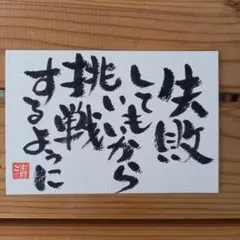 失敗
してもいいから
挑戦
するように